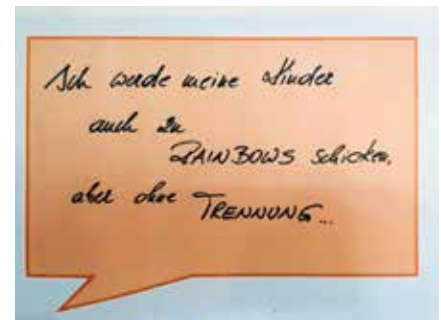 Ich werde meine Kinder
auch zu
RAINBOWS schicken,
aber ohne TRENNUNG...